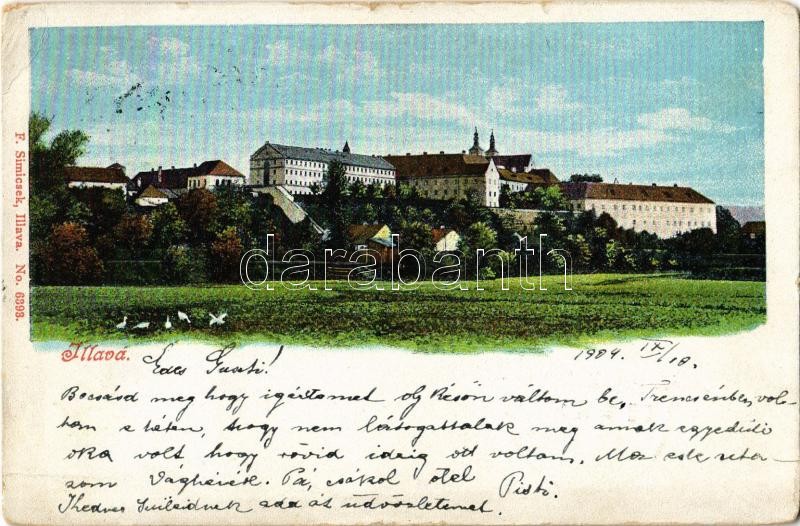 F. Simicsek, Illava. No. 6393.
darabanth
Illava.
Édes Guszti!
1904. IX/18.
Bocsásd meg hogy igéretemet oly későn váltom be, Trencsénben, vol-
tam e héten, hogy nem látogattalak meg annak egyedüli
oka volt hogy rövid ideig ott voltam. Ma este uta-
zom Pá, csókol ölel Pisti.
Kedves Szüleidnek add át üdvözletemet.